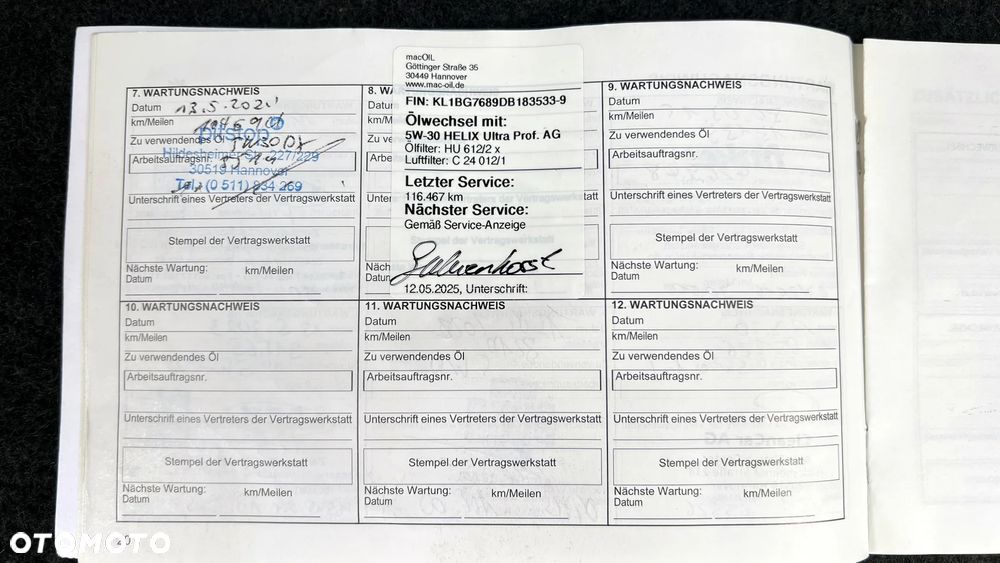 7. WARTUNGSNACHWEIS
Datum 13.5.202
km/Meilen
Zu verwendendes Öl
pitstop
Hildesheimer Str. 227/229
Arbeitsauftragsnr.
30519 Hannover
Tel.: (0 511) 834 269
Unterschrift eines Vertreters der Vertragswerkstatt
Stempel der Vertragswerkstatt
Nächste Wartung: km/Meilen
Datum
8. WA
Datum
km/M
Zu ve
Arbe
Unter
Stempel der Vertragswerkstatt
Näch
Datum
macOIL
Göttinger Straße 35
30449 Hannover
www.mac-oil.de
FIN: KL1BG7689DB183533-9
Ölwechsel mit:
5W-30 HELIX Ultra Prof. AG
Ölfilter: HU 612/2 x
Luftfilter: C 24 012/1
Letzter Service:
116.467 km
Nächster Service:
Gemäß Service-Anzeige
12.05.2025, Unterschrift:
9. WARTUNGSNACHWEIS
Datum
km/Meilen
Zu verwendendes Öl
Arbeitsauftragsnr.
Unterschrift eines Vertreters der Vertragswerkstatt
Stempel der Vertragswerkstatt
Nächste Wartung: km/Meilen
Datum
10. WARTUNGSNACHWEIS
Datum
km/Meilen
Zu verwendendes Öl
Arbeitsauftragsnr.
Unterschrift eines Vertreters der Vertragswerkstatt
Stempel der Vertragswerkstatt
Nächste Wartung: km/Meilen
Datum
11. WARTUNGSNACHWEIS
Datum
km/Meilen
Zu verwendendes Öl
Arbeitsauftragsnr.
Unterschrift eines Vertreters der Vertragswerkstatt
Stempel der Vertragswerkstatt
Nächste Wartung: km/Meilen
Datum
12. WARTUNGSNACHWEIS
Datum
km/Meilen
Zu verwendendes Öl
Arbeitsauftragsnr.
Unterschrift eines Vertreters der Vertragswerkstatt
Stempel der Vertragswerkstatt
Nächste Wartung: km/Meilen
Datum
20
OTOMOTO